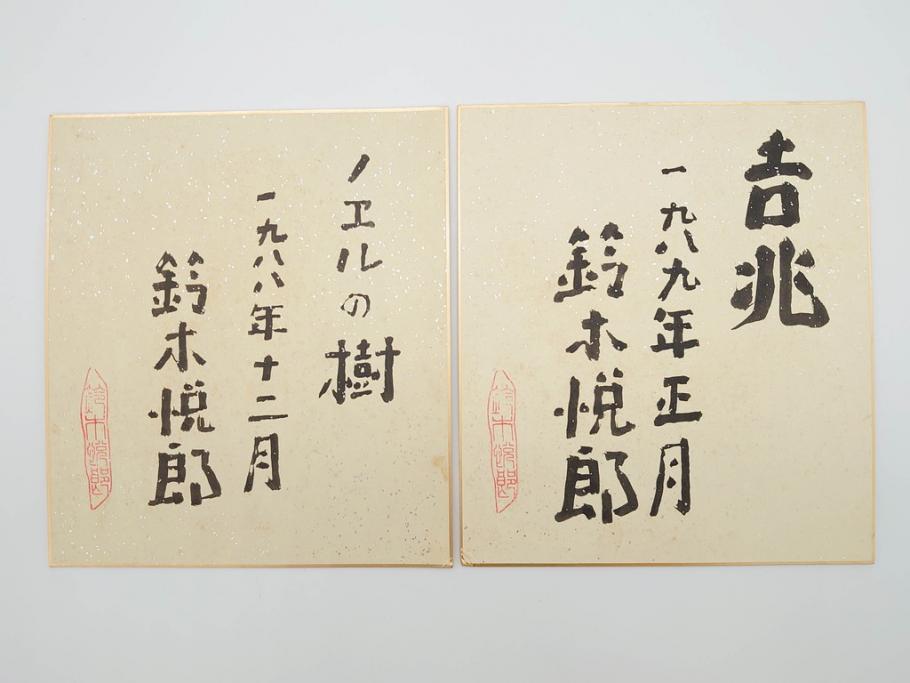 吉兆
一九八九年正月
鈴木悦郎
鈴木悦郎
ノヱルの樹
一九八八年十二月
鈴木悦郎
鈴木悦郎